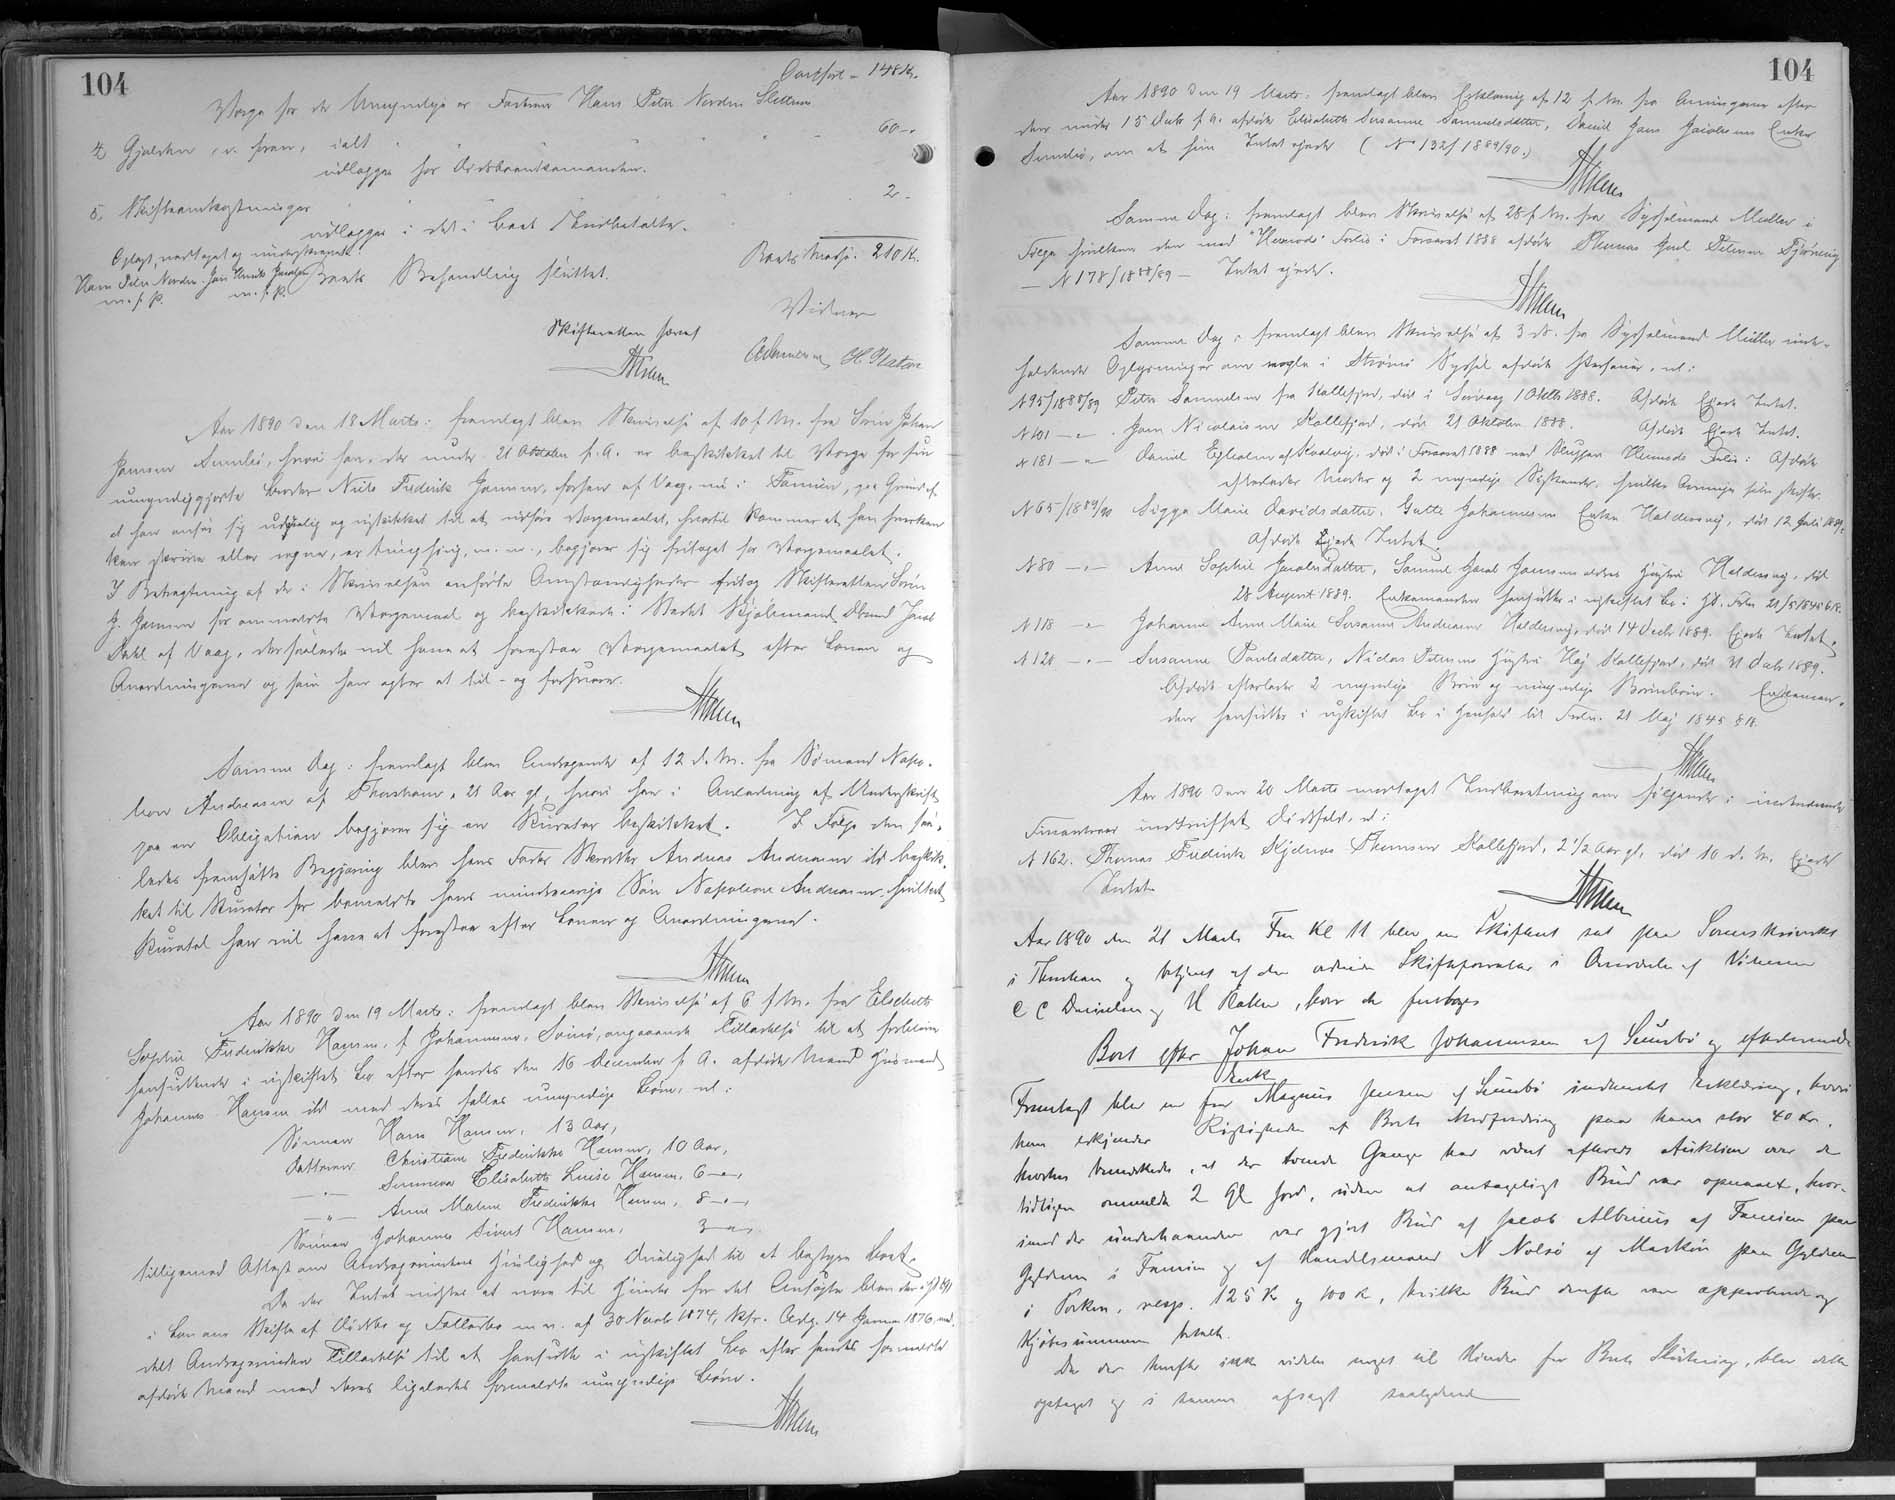 104
Overført - 148 Kr.
Værge for de Umyndige er Farbroer Hans Peter Norden Slettum
4. Gjælden, v. foran, ialt 60 -
udlægges for Dødsboenkemanden.
5. Skifteomkostninger 2 -
udlægges i det i Boet Indbetalte.
Boets Masse: 210 Kr.
Oplæst, vedtaget og underskrevet.
Hans Peter Norden
m. f. P. m. f. P.
Boets Behandling sluttet.
Skifteretten hævet
Vidner
H. Platou
Aar 1890 den 18 Marts: fremlagt blev Skrivelse af 10 f. M. fra Sørin Johan
Jensen Sumbø, hvori han, der under 21 Oktober f. A. er beskikket til Værge for sin
umyndiggjorte Broder Niels Frederik Jensen, forhen af Vaag, nu i Famien, paa Grund af
at han anser sig uduelig og uskikket til at udføre Værgemaalet, hvortil kommer at han hverken
kan skrive eller regne, er tunghørig, m. m., begjærer sig fritaget for Værgemaalet.
I Betragtning af de i Skrivelsen anførte Omstændigheder fritog Skifteretten Sørin
J. Jensen for ommeldte Værgemaal og beskikkede i Stedet Skjølmand Jacob
Dahl af Vaag, der saaledes vil have at forestaa Værgemaalet efter Loven og
Anordningerne og som han agter at til- og forsvare.
Samme Dag: fremlagt blev Andragende af 12 d. M. fra Sømand Napo-
leon Andreasen af Thorshavn, 21 Aar gl, hvori han i Anledning af Underskrift
paa en Obligation begjærer sig en Kurator beskikket. I Følge den saa-
ledes fremsatte Begjæring blev hans Fader Andreas Andreasen ibd beskik-
ket til Kurator for bemeldte hans mindreaarige Søn Napoleon Andreasen, hvilket
Kuratel han vil have at forestaa efter Loven og Anordningerne.
Aar 1890 den 19 Marts: fremlagt blev Skrivelse af 6 f. M. fra Elsebeth
Sophie Frederikke Hansen, f. Johannesen, angaaende Tilladelse til at forblive
hensiddende i uskiftet Bo efter hendes den 16 December f. A. afdøde Mand Huusmand
Johannes Hansen ibd med deres fælles umyndige Børn, nl:
Sønnen Hans Hansen, 13 Aar,
Datteren Christiane Frederikke Hansen, 10 Aar,
— " — Sunneva Elisabeth Luise Hansen, 6 — " —
— " — Anne Malene Frederikke Hansen, 8 — " —
Sønnen Johannes Sivert Hansen, 3 — " —
tilligemed Attest om Andragerindens Huuslighed og Duelighed til at bestyre Boet.
Da der Intet vidstes at være til Hinder for det Ansøgte blev der
i Lov om Skifte af Dødsbo og Fællesbo m. v. af 30 Novb 1874, kfr. Bekg. 14 Januar 1876, med-
delt Andragerinden Tilladelse til at hensidde i uskiftet Bo efter hendes formeldte
afdøde Mand med deres ligeledes formeldte umyndige Børn.
104
Aar 1890 den 19 Marts: fremlagt blev Erklæring af 12 f. M. fra Arvingerne efter
den under 15 Dcbr f. A. afdøde Elisabeth Susanne Samuelsdatter, Daniel Hans Jacobsens Enke
Sumbø, om at hun Intet ejede (N 132/1889/90.)
Samme Dag: fremlagt blev Skrivelse af 28 f. M. fra Sysselmand Müller i
Følge hvilken den med "Hermod" Forlis i Foraaret 1888 afdøde Thomas Juul Petersen
— N 178/1888/89 — Intet ejede.
Samme Dag: fremlagt blev Skrivelse af 3 ds. fra Sysselmand Müller inde-
holdende Oplysninger om nogle i Strømø Syssel afdøde Personer, nl:
N 95/1888/89 Peter Samuelsen fra Kollefjord, død i Sørvaag 1 Oktbr 1888. Afdøde Ejede Intet.
N 101 — " — Hans Nicolaisen Kollefjord, død 21 Oktober 1888. Afdøde Ejede Intet.
N 181 — " — Daniel Egholm af Kvalvig, død i Foraaret 1888 ved Slupen Hermods Forlis: Afdøde
efterlader Moder og 2 myndige Søskende, hvilke Arvinge selv skifter.
N 65/1889/90 Sigga Marie Davidsdatter, Gutte Johannesens Enke Haldersvig, død 12 Juli 1889.
Afdøde Ejede Intet.
N 80 — " — Anne Sophie Jacobsdatter, Samuel Jacob Joensens Hustru Haldersvig, død
28 August 1889. Enkemanden hensidder i uskiftet Bo i Hd. Frdn 21/5 1845 § 18.
N 118 — " — Johanne Anne Marie Susanne Andreasen Haldersvig, død 14 Decbr 1889. Ejede Intet.
N 120 — " — Susanne Poulsdatter, Niclas Petersens Hustru Høj Kollefjord, død 31 Decbr 1889.
Afdøde efterlader 2 myndige Børn og umyndige Børnebørn. Enkeman-
den hensidder i uskiftet Bo i Henhold til Frdn. 21 Maj 1845 § 18.
Aar 1890 den 20 Marts modtaget Indberetning om følgende i indeværende
Finantsaar indtruffet Dødsfald, nl:
N 162. Thomas Frederik Thomsen Kollefjord, 2 1/2 Aar gl, død 10 d. M. Ejede
Intet.
Aar 1890 den 21 Marts Fm Kl 11 blev en Skifteret sat paa Sorenskriveriet
i Thorshavn og betjent af den ordinære Skifteforvalter i Overværelse af Vidnerne
C C Danielsen og H Platou, hvor da foretoges
Boet efter Johan Frederik Johannesen af Sumbø og efterlevende
Enke
Fremlagt blev en fra Magnus Jensen af Sumbø indsendt Erklæring, hvori
han erkjender Rigtigheden af Boets Anfordring paa ham stor 40 Kr.
Hvorhos bemærkedes, at der tvende Gange har været afholdt Auktion over de
tidligere ommeldte 2 Gl Jord, uden at antageligt Bud var opnaaet, hvor-
imod der underhaanden var gjort Bud af Jacob Albinus af Famien paa
Gyldenen i Famien og af Handelsmand N Nolsø af paa Gyldenen
i Porkere, resp. 125 Kr og 100 Kr, hvilke Bud derefter var approberede og
Kjøbesummerne betalt.
Da der herefter ikke vidstes noget til Hinder for Boets Slutning, blev dette
optaget og i samme afsagt saalydende